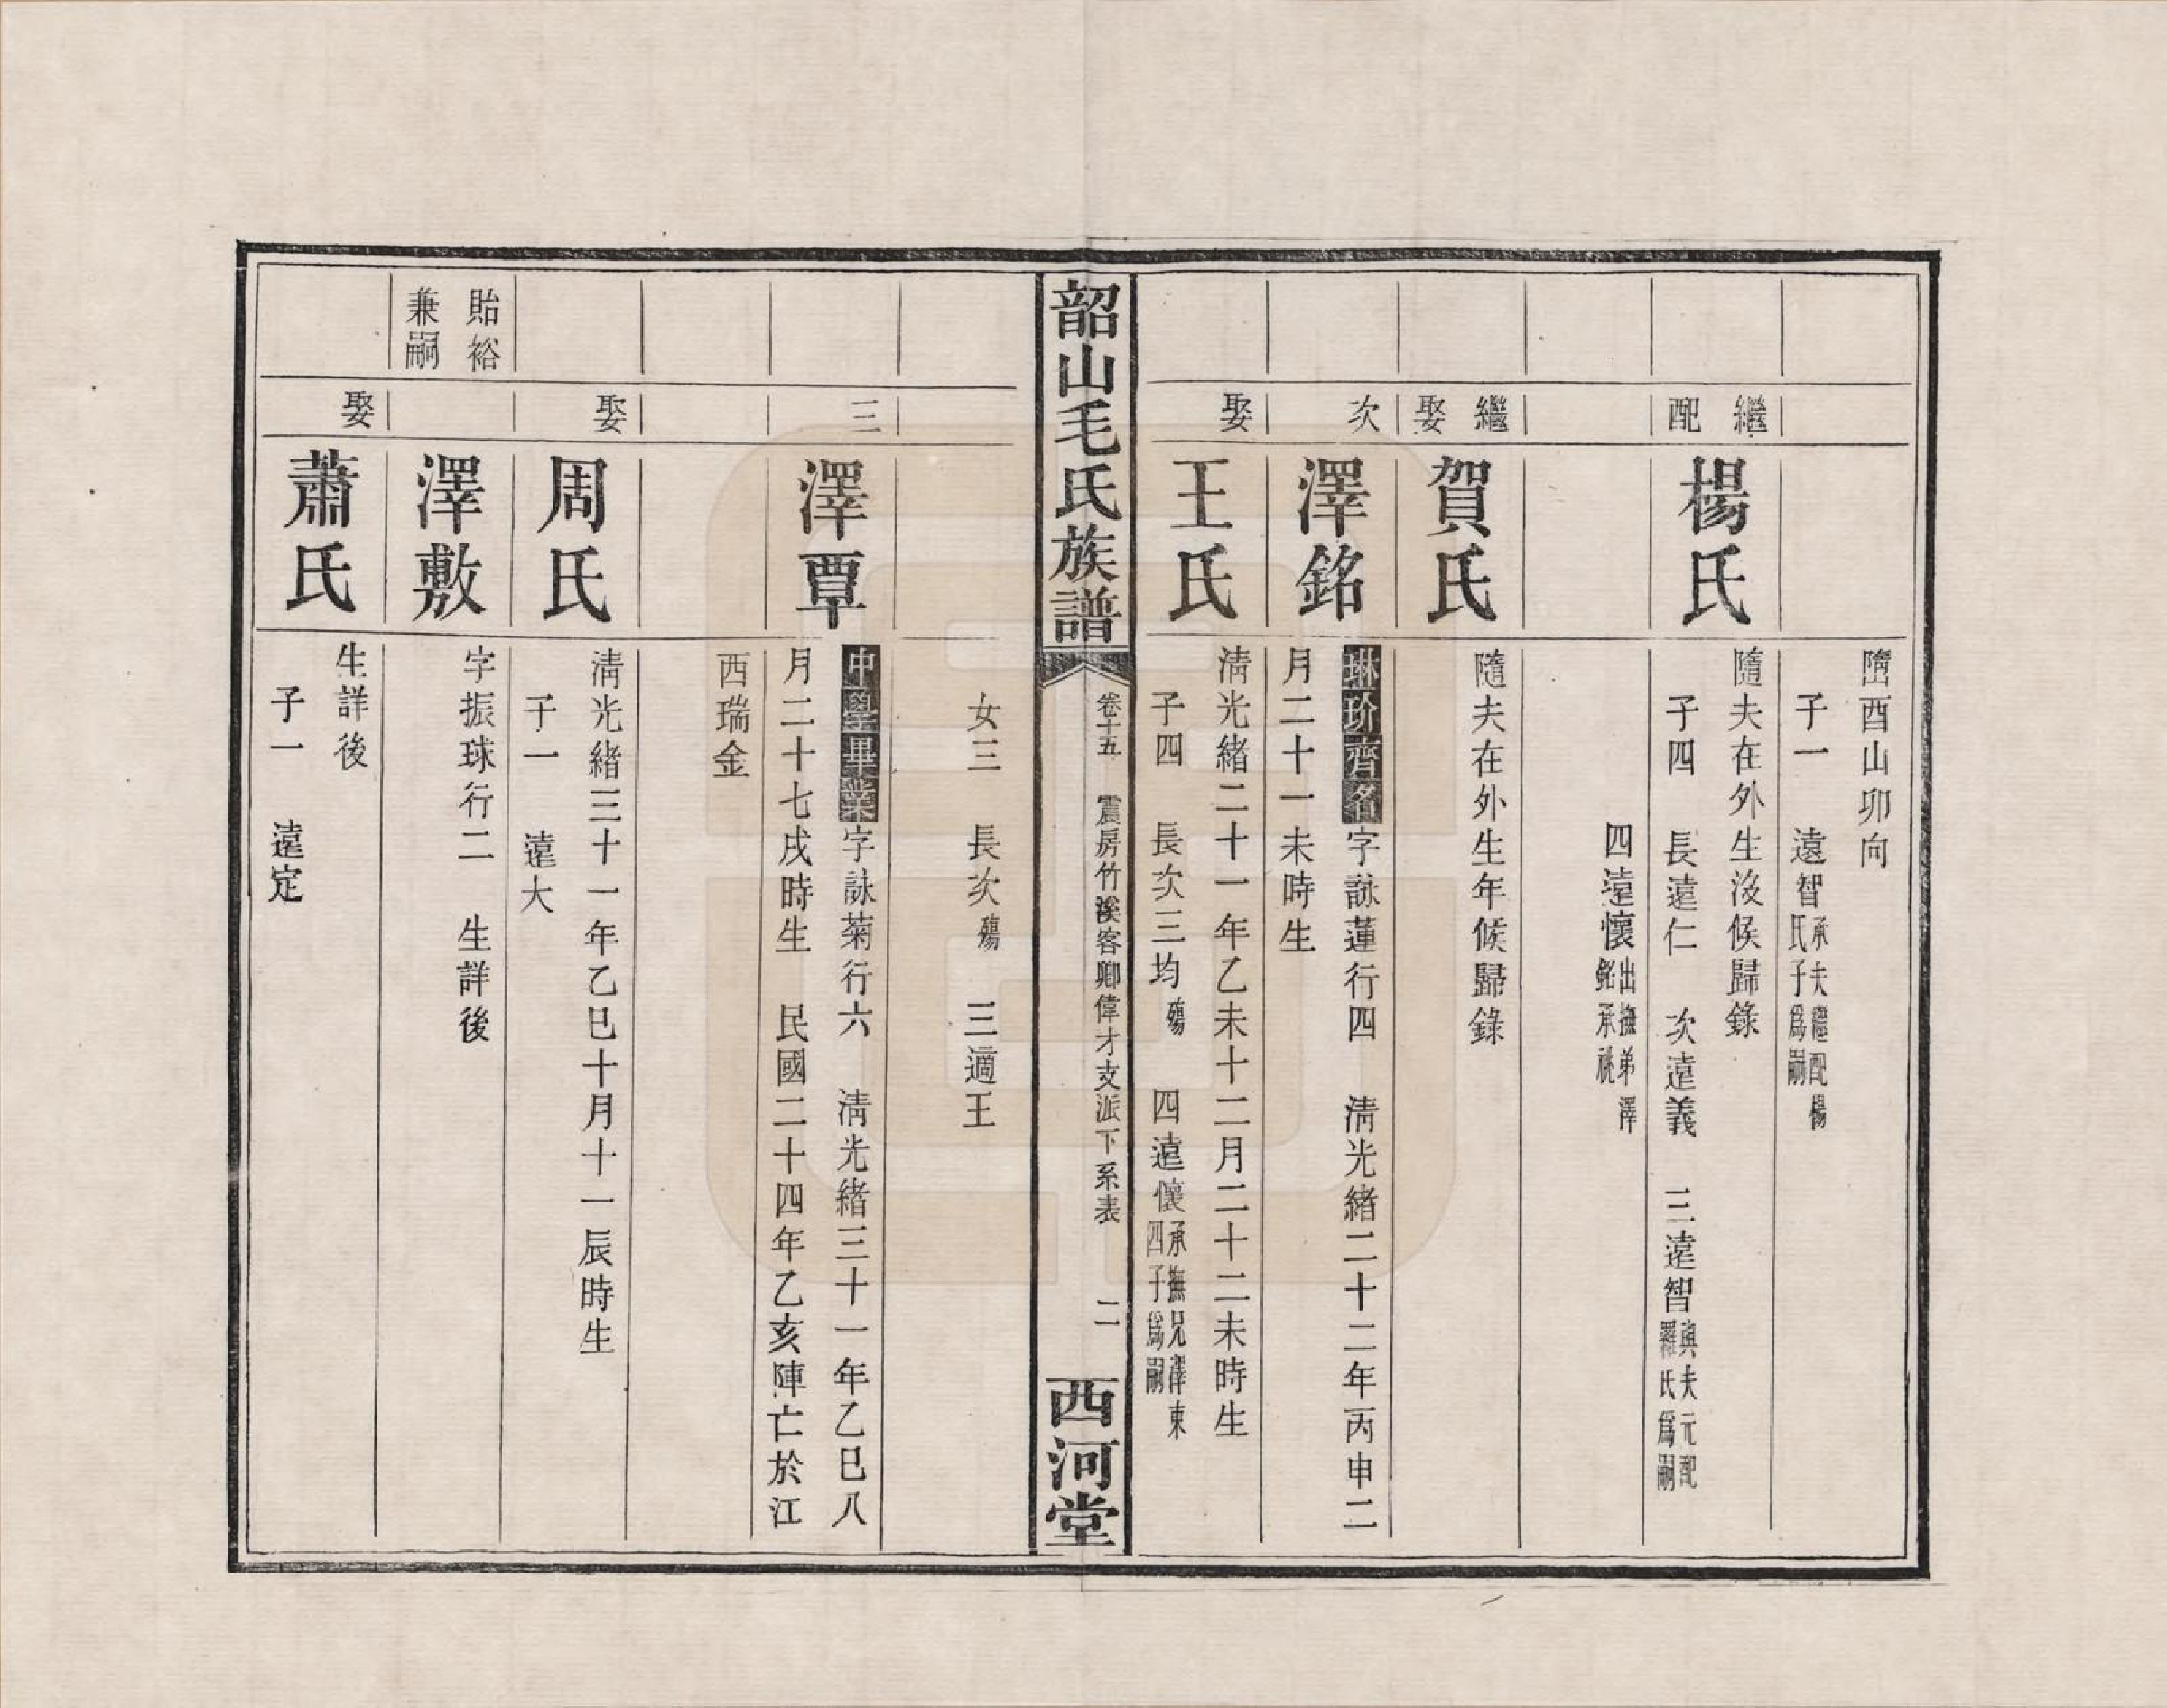 𡺾酉山卯向
子一　遠智承夫繼配楊氏子爲嗣
繼配
楊氏
隨夫在外生沒候歸錄
子四　長遠仁　次遠義　三遠智與夫元配羅氏爲嗣
四遠懷出撫弟澤銘承祧
繼娶
賀氏
隨夫在外生年候歸錄
次
澤銘
琳玠齊名字詠蓮行四　淸光緒二十二年丙申二
月二十一未時生
娶
王氏
淸光緒二十一年乙未十二月二十二未時生
子四　長次三均殤　四遠懷承撫兄澤東四子爲嗣
韶山毛氏族譜
卷十五　震房竹溪客卿偉才支派下系表　二
西河堂
女三　長次殤　三適王
三
澤覃
中學畢業字詠菊行六　淸光緒三十一年乙巳八
月二十七戌時生　民國二十四年乙亥陣亡於江
西瑞金
娶
周氏
淸光緒三十一年乙巳十月十一辰時生
子一　遠大
貽裕
兼嗣
澤敷
字振球行二　生詳後
娶
蕭氏
生詳後
子一　遠定